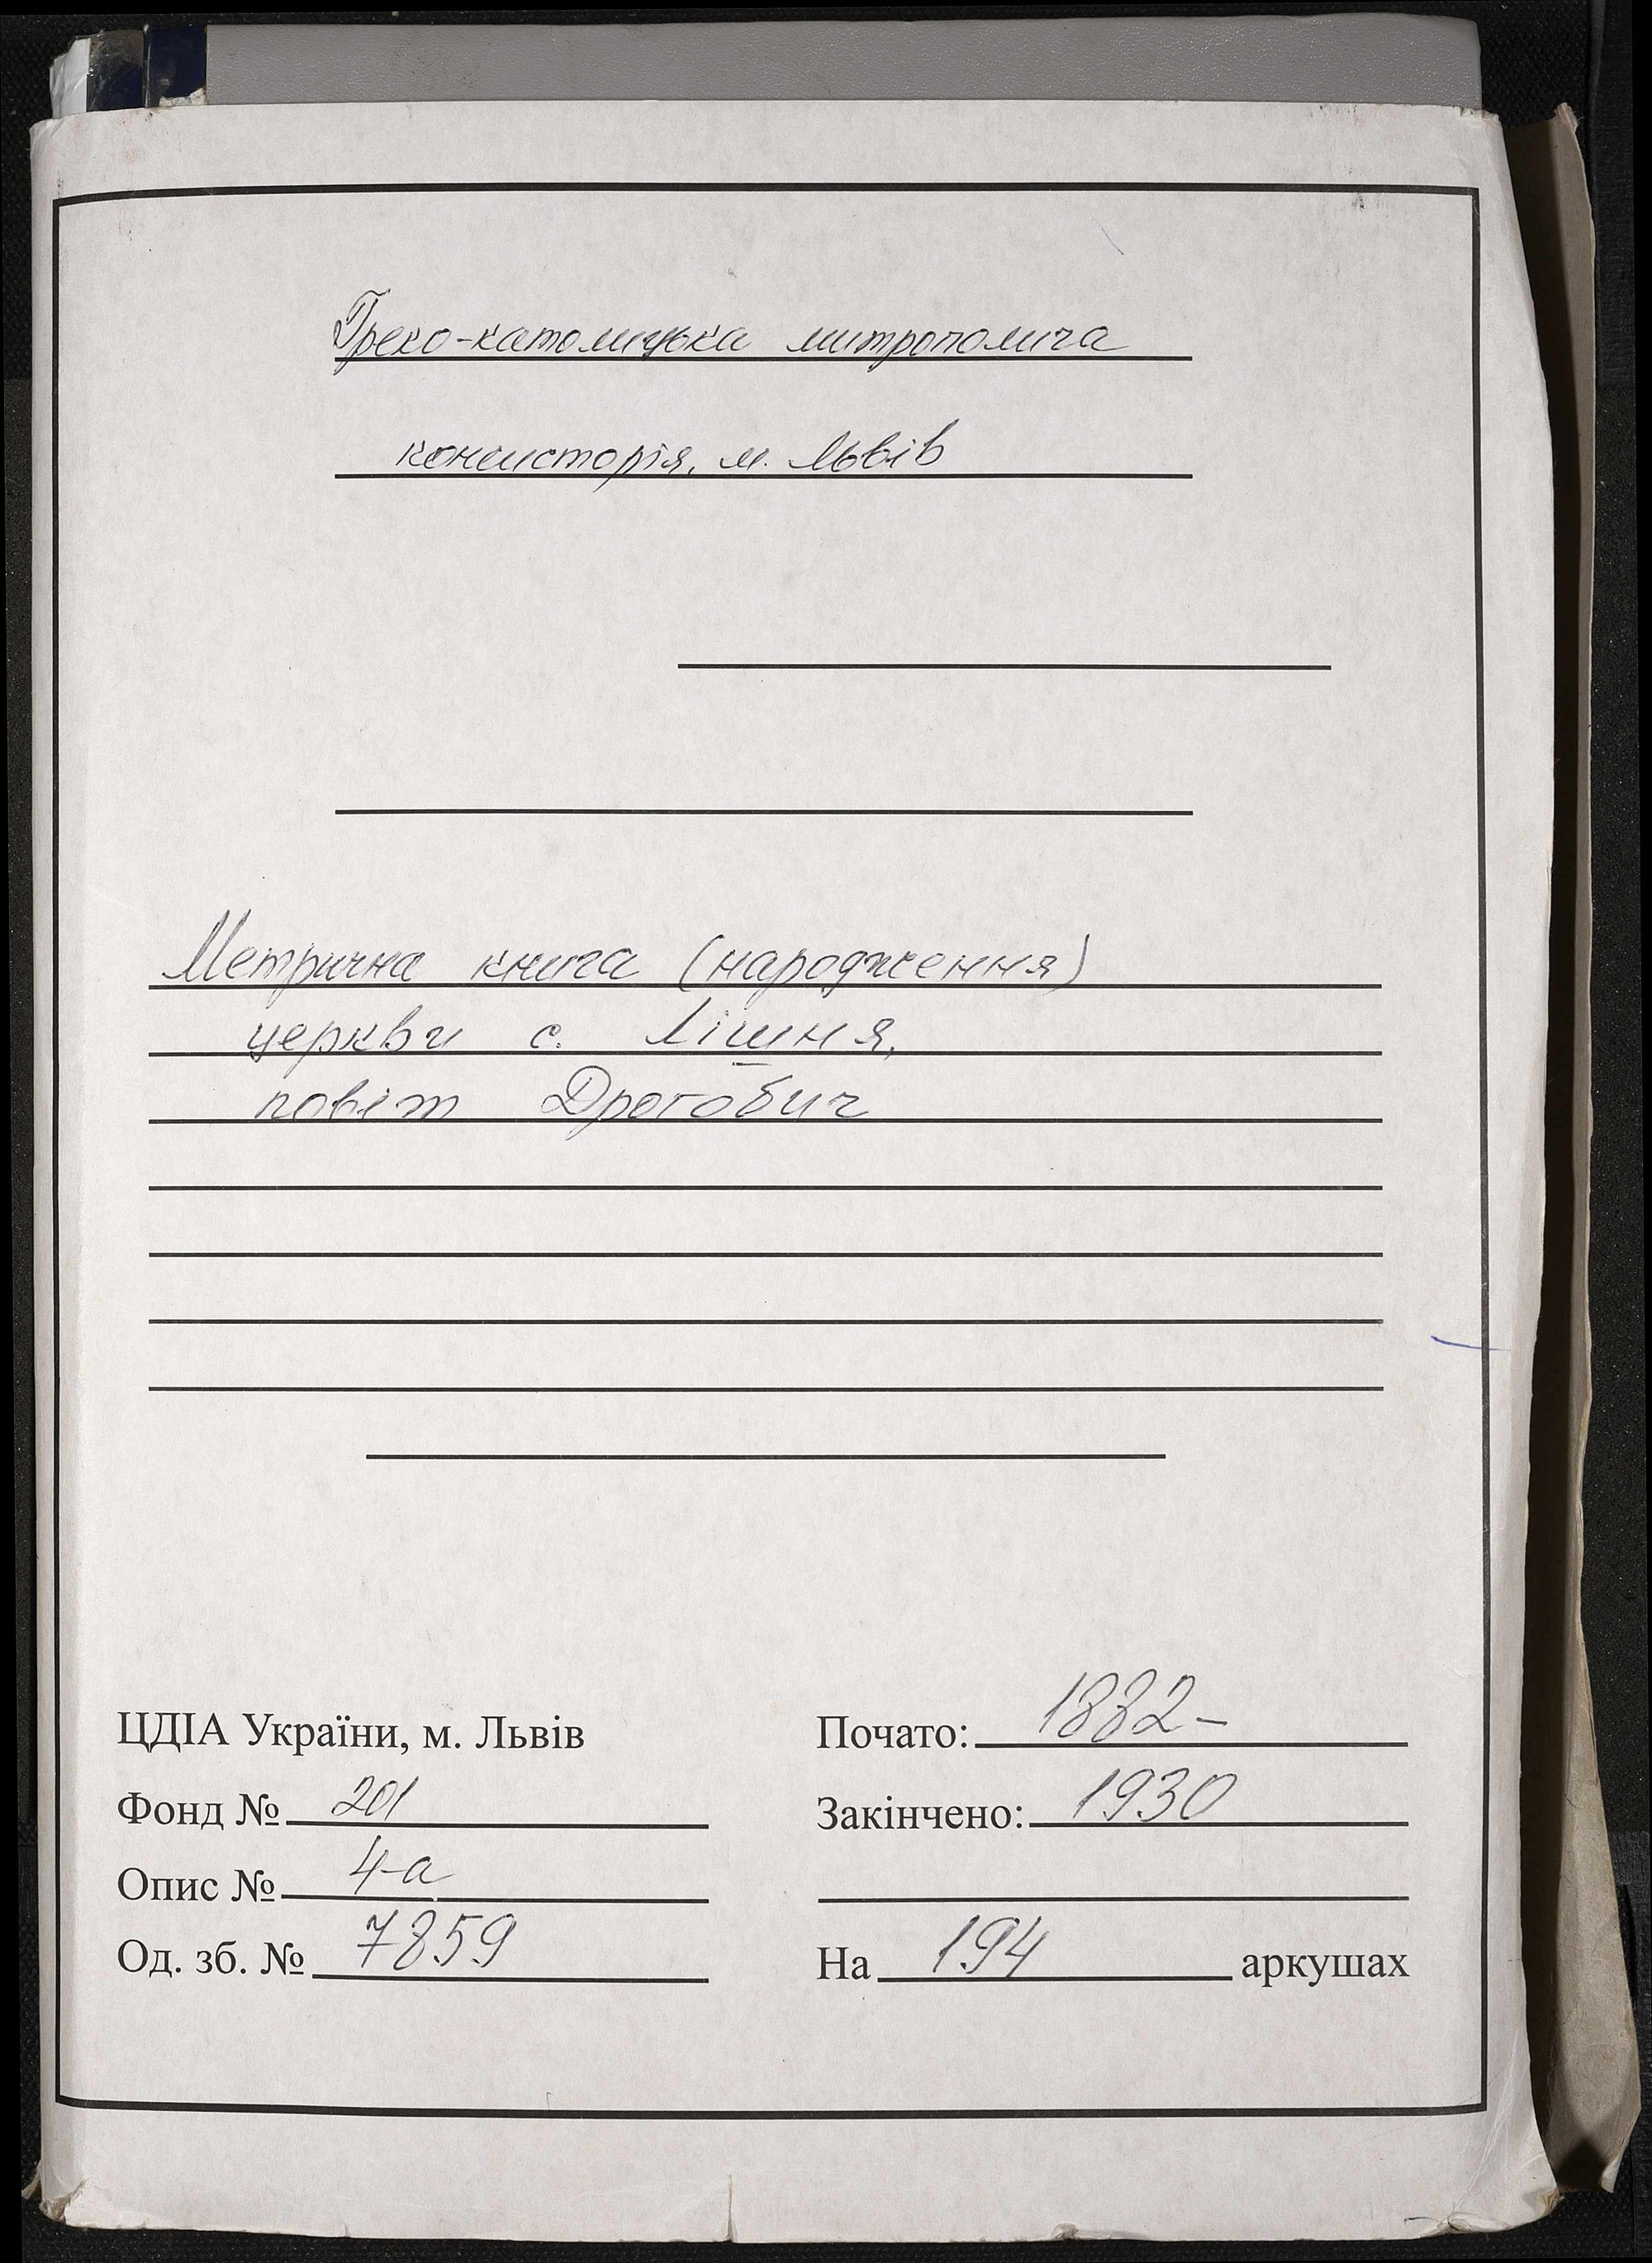 Греко-католицька митрополича
консисторія, м. Львів
Метрична книга (народження)
церкви с. Лішня,
повіт Дрогобич
ЦДІА України, м. Львів
Фонд № 201
Опис № 4-а
Од. зб. № 7859
Почато: 1882-
Закінчено: 1930
На 194 аркушах